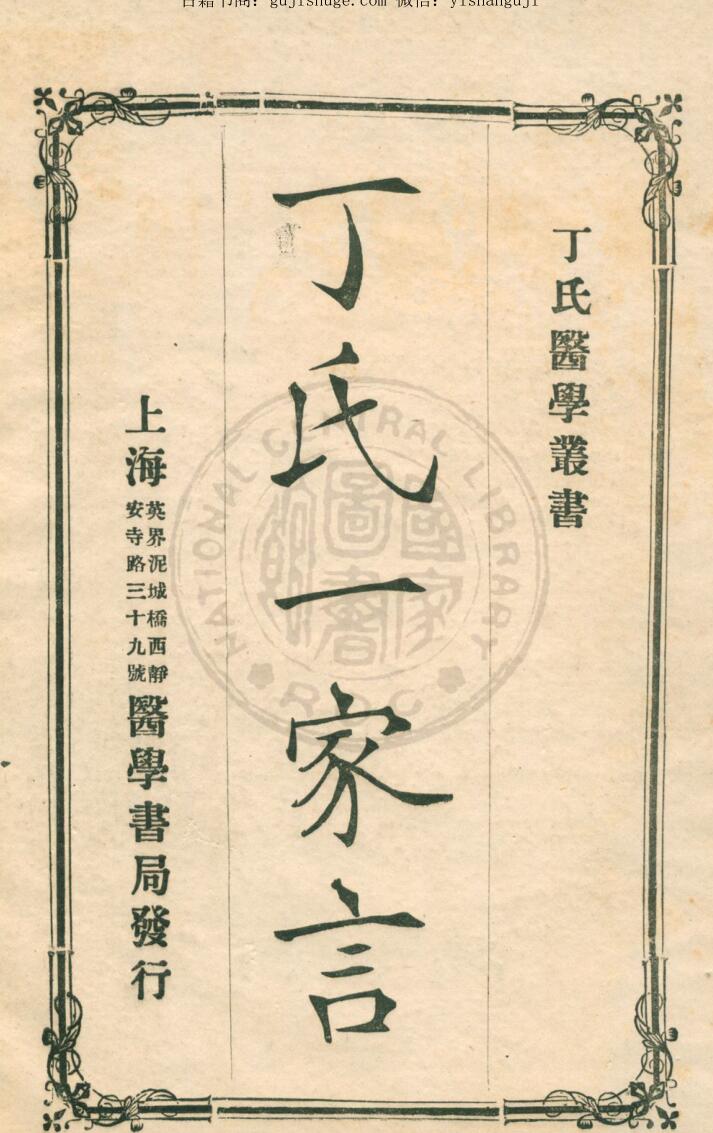 古籍书阁：gujishuge.com 微信：yishanguji
丁氏醫學叢書
丁氏一家言
上海
英界泥城橋西靜
安寺路三十九號
醫學書局發行
NATIONAL CENTRAL LIBRARY
R.O.C
國家圖書館